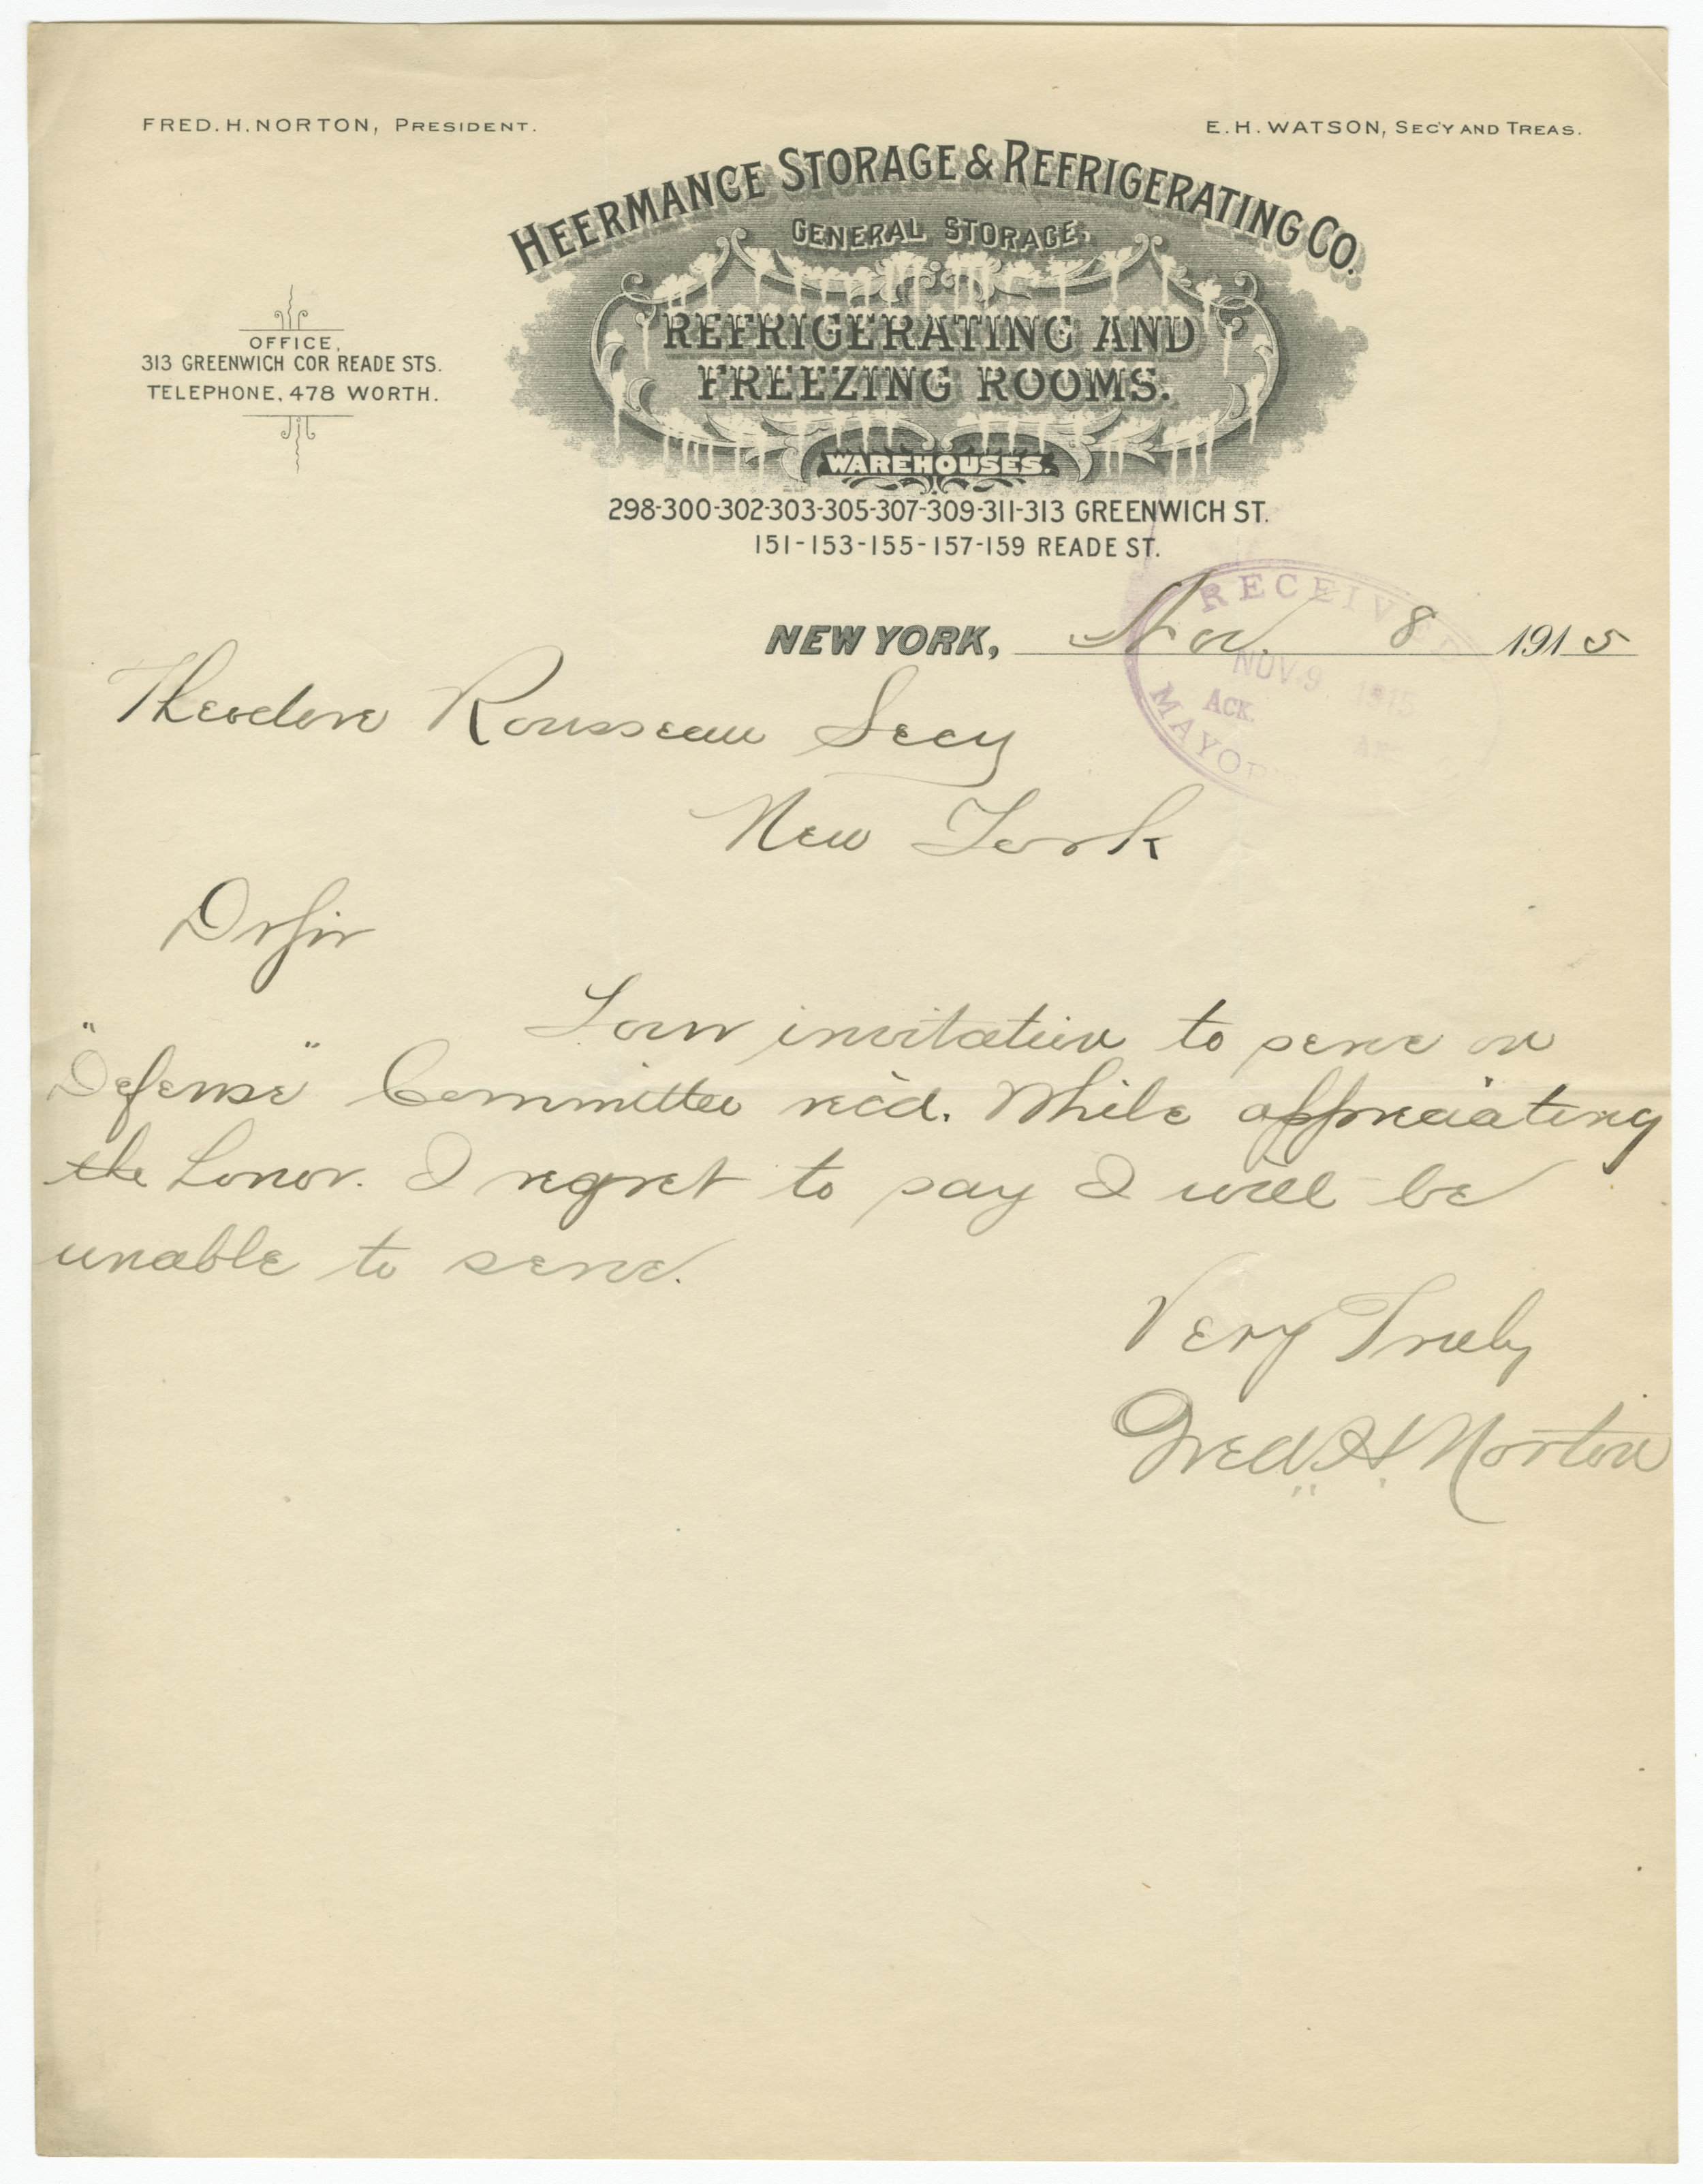 FRED. H. NORTON, PRESIDENT.
E. H. WATSON, SEC'Y AND TREAS.
HEERMANCE STORAGE & REFRIGERATING CO.
GENERAL STORAGE,
REFRIGERATING AND
FREEZING ROOMS.
WAREHOUSES.
298-300-302-303-305-307-309-311-313 GREENWICH ST.
151-153-155-157-159 READE ST.
OFFICE,
313 GREENWICH COR READE STS.
TELEPHONE, 478 WORTH.
NEW YORK, Nov. 8 1915
RECEIVED
NOV. 9 1915
ACK.
MAYOR'
Theodore Rousseau Secy
New York
Dr Sir
Your invitation to serve on
"Defense" Committee rec'd. While appreciating
the honor. I regret to say I will be
unable to serve.
Very Truly
Fred. H. Norton